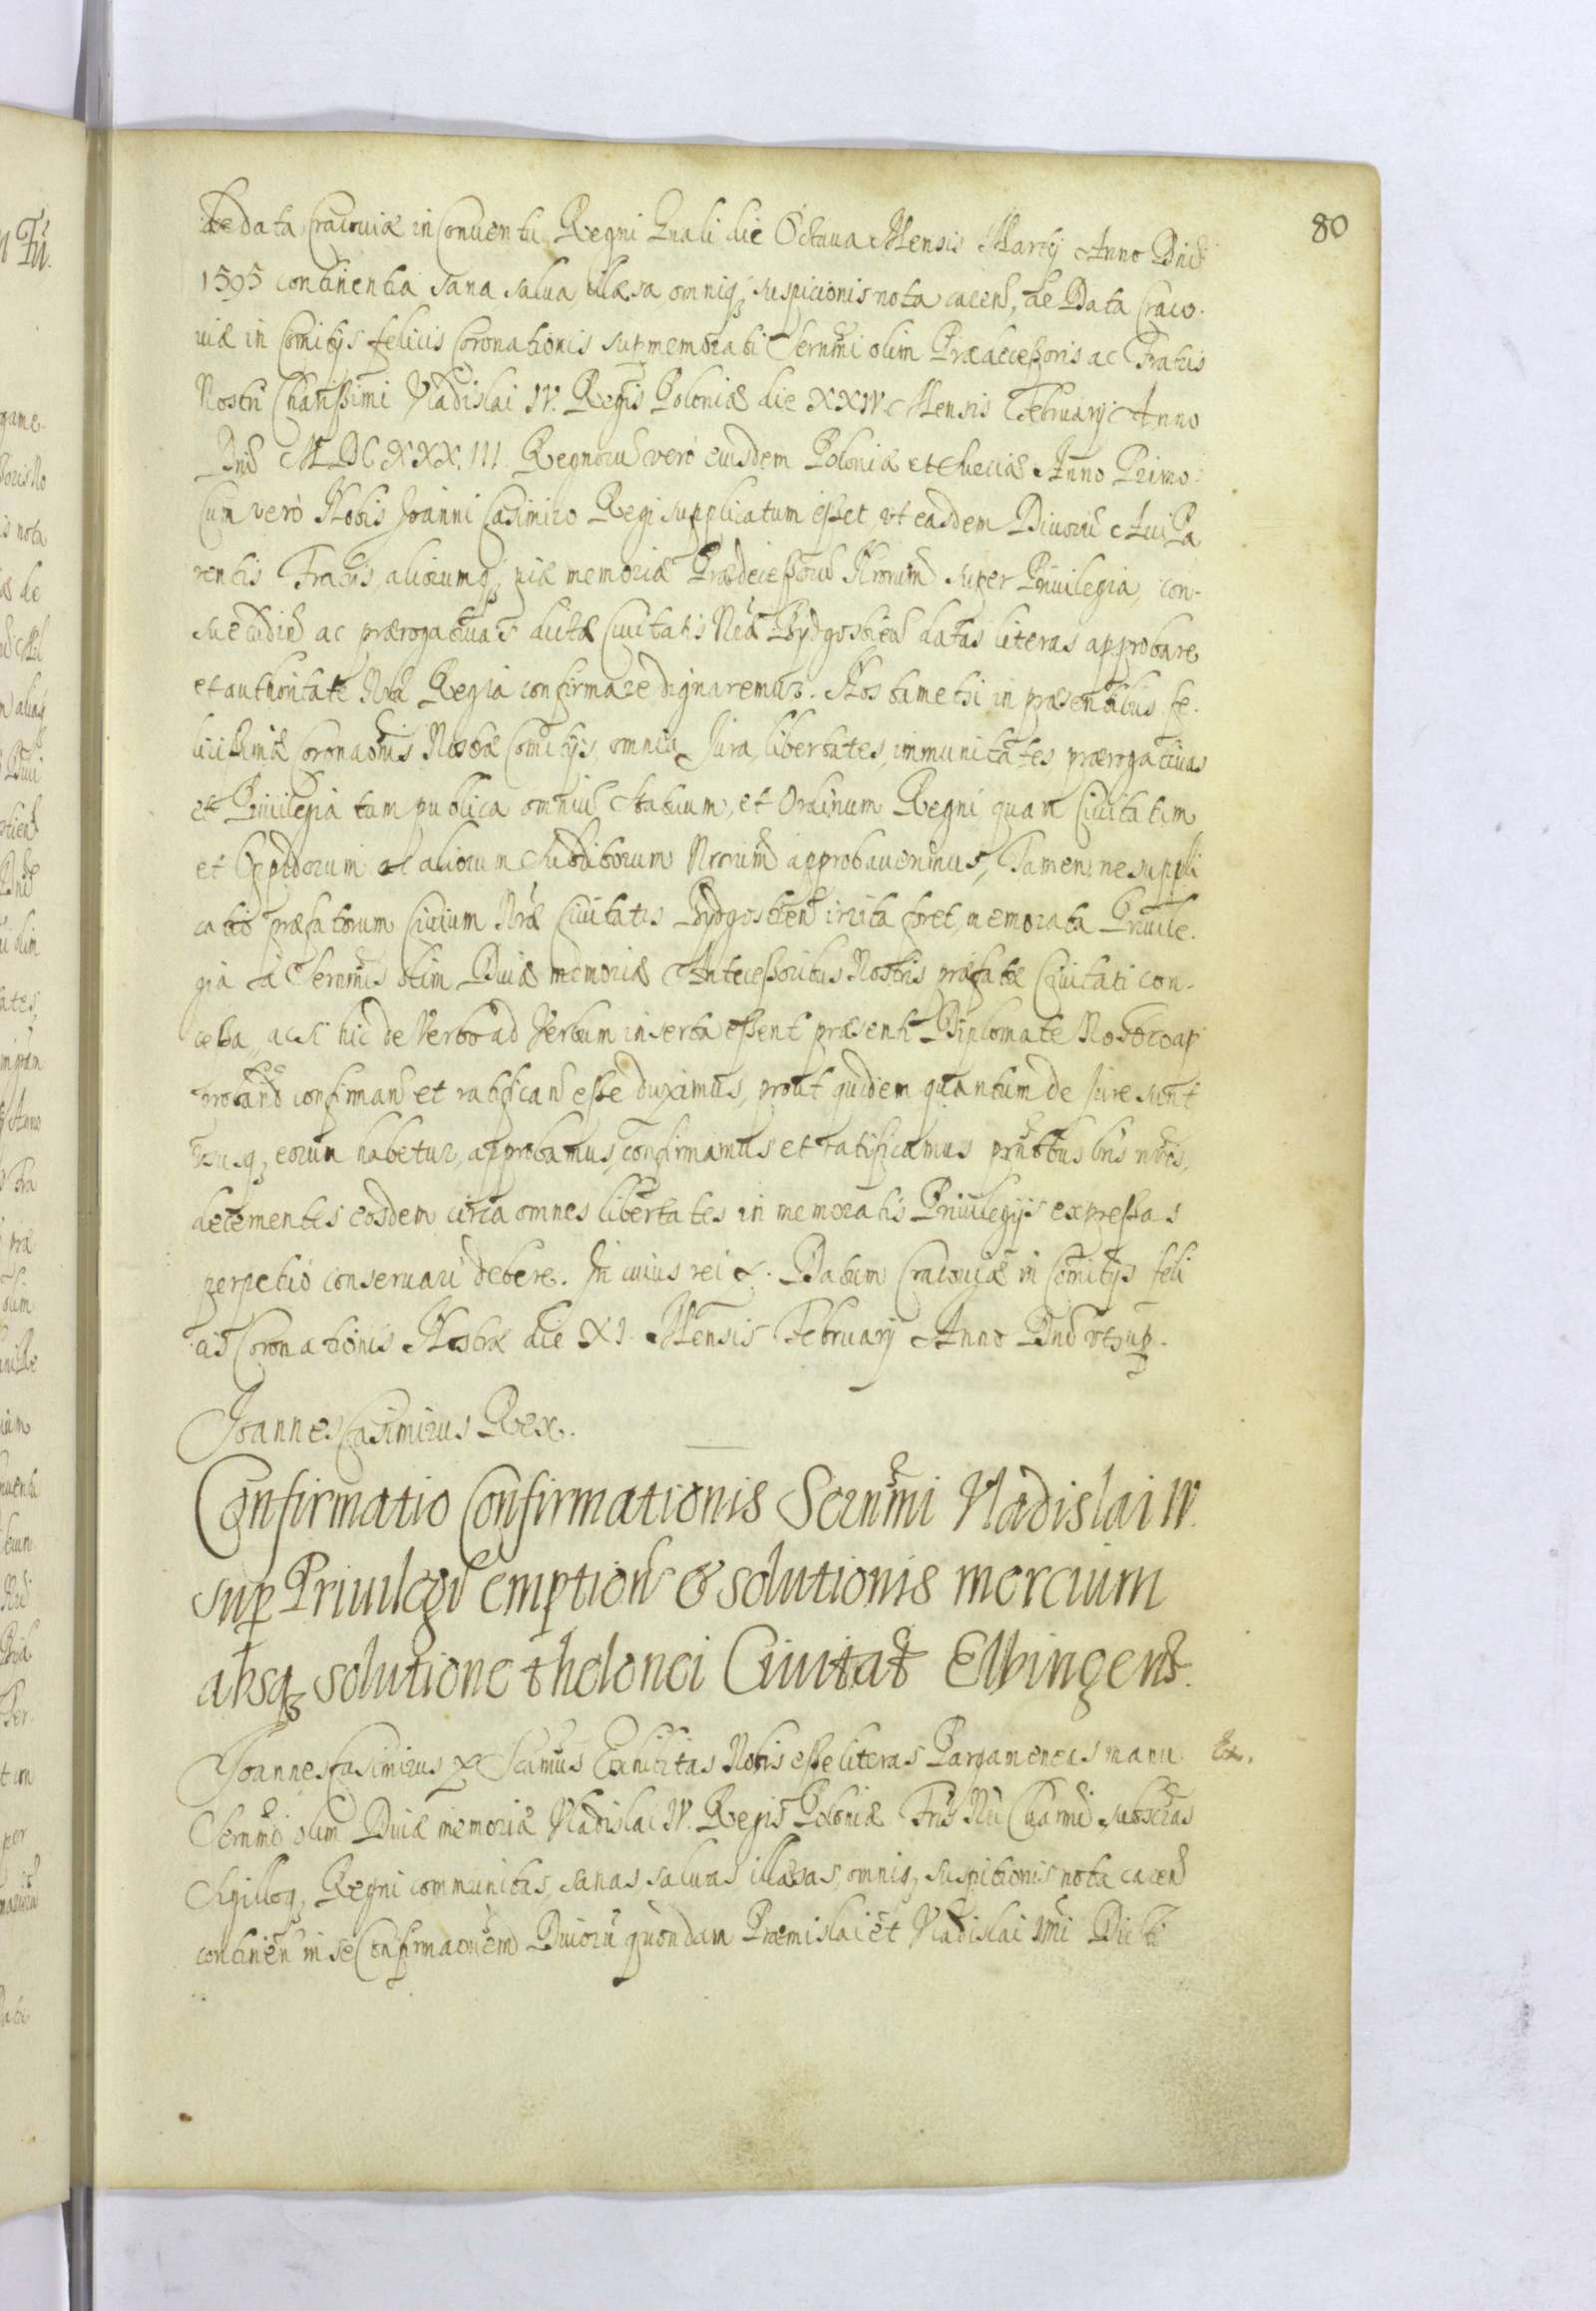 80
de data Cracouiæ in Conuentu Regni Gnali die Octaua Mensis Martij Anno Dni
1595 continentia sana salua illæsa omniq; suspicionis nota caren, de Data Craco-
uiæ in Comitijs felicis Coronationis supmemorati Sernmi olim Prædecessoris ac Fratris
Nostri Charissimi Vladislai IV. Regis Poloniæ die XXIV Mensis Februarij Anno
Dni MDCXXXIII. Regnoru vero eiusdem Poloniæ et Sueciæ Anno Primo.
Cum vero Nobis Joanni Casimiro Regi supplicatum esset vt easdem Diuoru Aui Pa
rentis Fratris aliorumq; piæ memoriæ Prædecessoru Nrorum super Priuilegia, con-
suetudin ac prærogatiuas dictæ Ciuitatis Nræ Bydgostien datas literas approbare
et authoritate Nra Regia confirmare dignaremur. Nos tametsi in præsentibus fe-
licissimæ Coronaonis Nostræ Comitijs, omnia Jura, libertates, immunitates, prærogatiuas
et Priuilegia tam publica omniu Statuum, et Ordinum Regni quam Ciuitatum
et Oppidorum et aliorum Subditorum Nrorum approbauerimus, Tamen ne suppli
catio præfatorum Ciuium Nræ Ciuitatis Bydgostien irrita foret, memorata Priuile-
gia a Sernmis olim Diuæ memoriæ Antecessoribus Nostris præfatæ Ciuitati con-
cessa, acsi hic de Verbo ad Verbum inserta essent præsenti Diplomate Nostro ap
proband confirman et ratifican esse duximus, prout quidem quantum de Jure sunt
vsusq; eorum habetur, approbamus, confirmamus et ratificamus pntibus lris nris,
decernentes eosdem circa omnes libertates in memoratis Priuilegijs expressas
perpetuo conseruari debere. In cuius rei &. Datum Cracouiæ in Comitijs feli
cis Coronationis Nostræ die XI. Mensis Februarij Anno Dni vtsup.
Joannes Casimirus Rex.
Confirmatio Confirmationis Sernmi Vladislai IV.
sup Priuilegiu emption & solutionis mercium
absq; solutione thelonei Ciuitat Elbingens.
Joannes Casimirus & Scimus Exhibitas Nobis esse literas Pargameneas manu
Ex.
Sernmi olim Diuæ memoriæ Vladislai IV. Regis Poloniæ Fris Nri Charmi subscras
Sigilloq; Regni communitas, sanas, saluas illæsas, omniq; suspitionis nota caren
continen in se Confirmaonem Diuoru quondam Præmislai et Vladislai 1mi Dicti